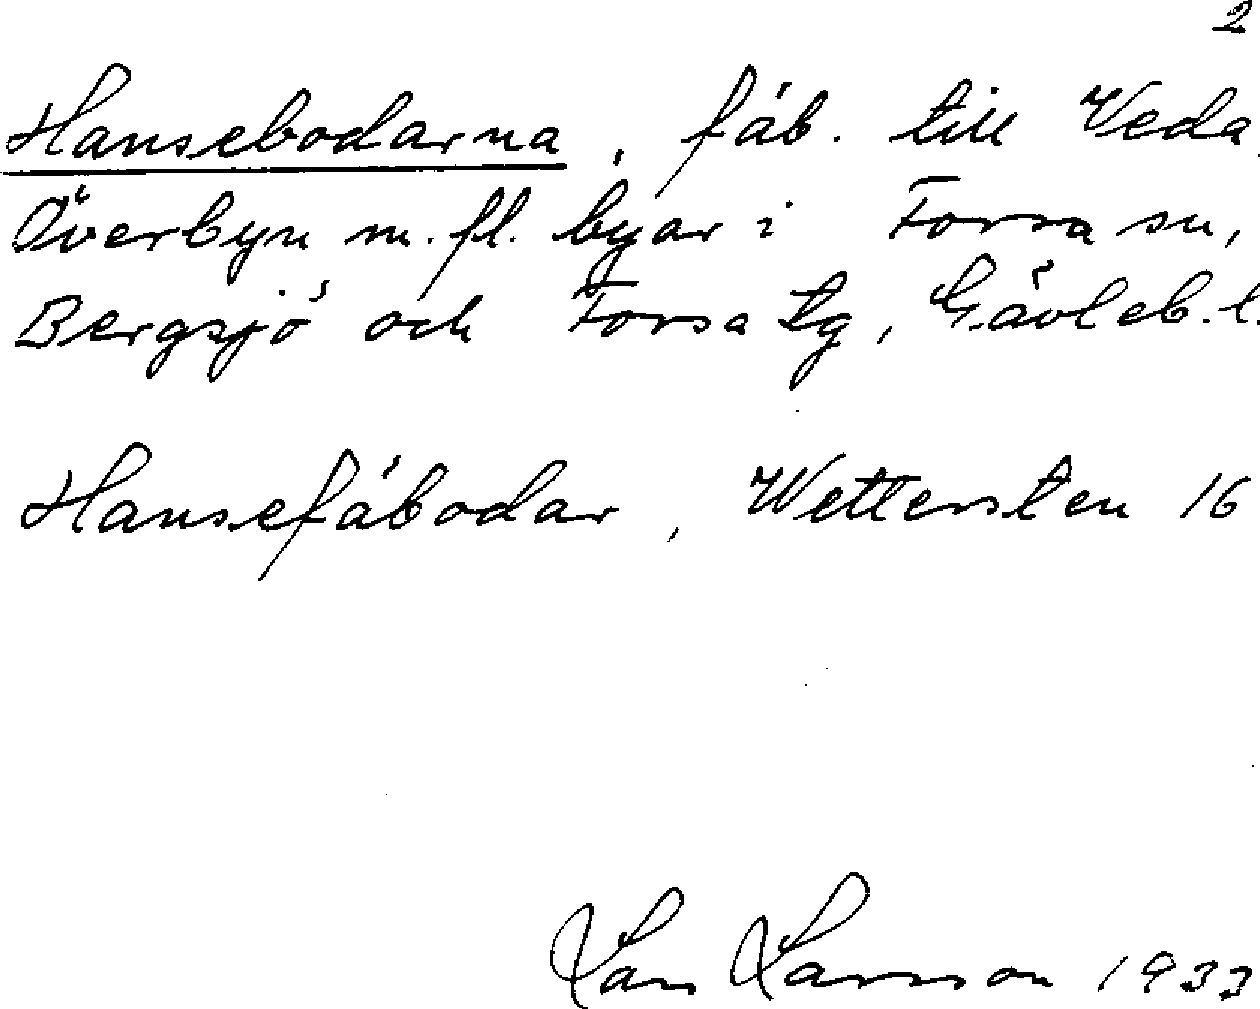 2
Hansebodarna, fäb. till Veda,
Överbyn m. fl. byar i Forssa sn,
Bergsjö och Forsa tg, Gävleb. l.
Hansefäbodar, Wettersten 16
Lars Larsson 1933